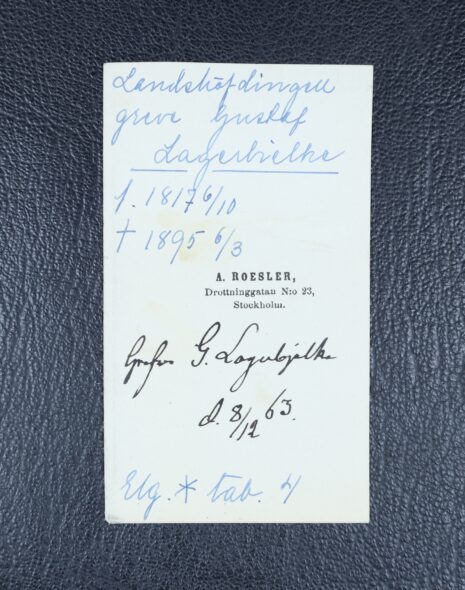 Landshöfdingen
greve Gustaf
Lagerbielke
f. 1817 6/10
† 1895 6/3
A. ROESLER,
Drottninggatan N:o 23,
Stockholm.
Grefve G. Lagerbjelke
d. 8/12 63.
Elg. * tab. 4